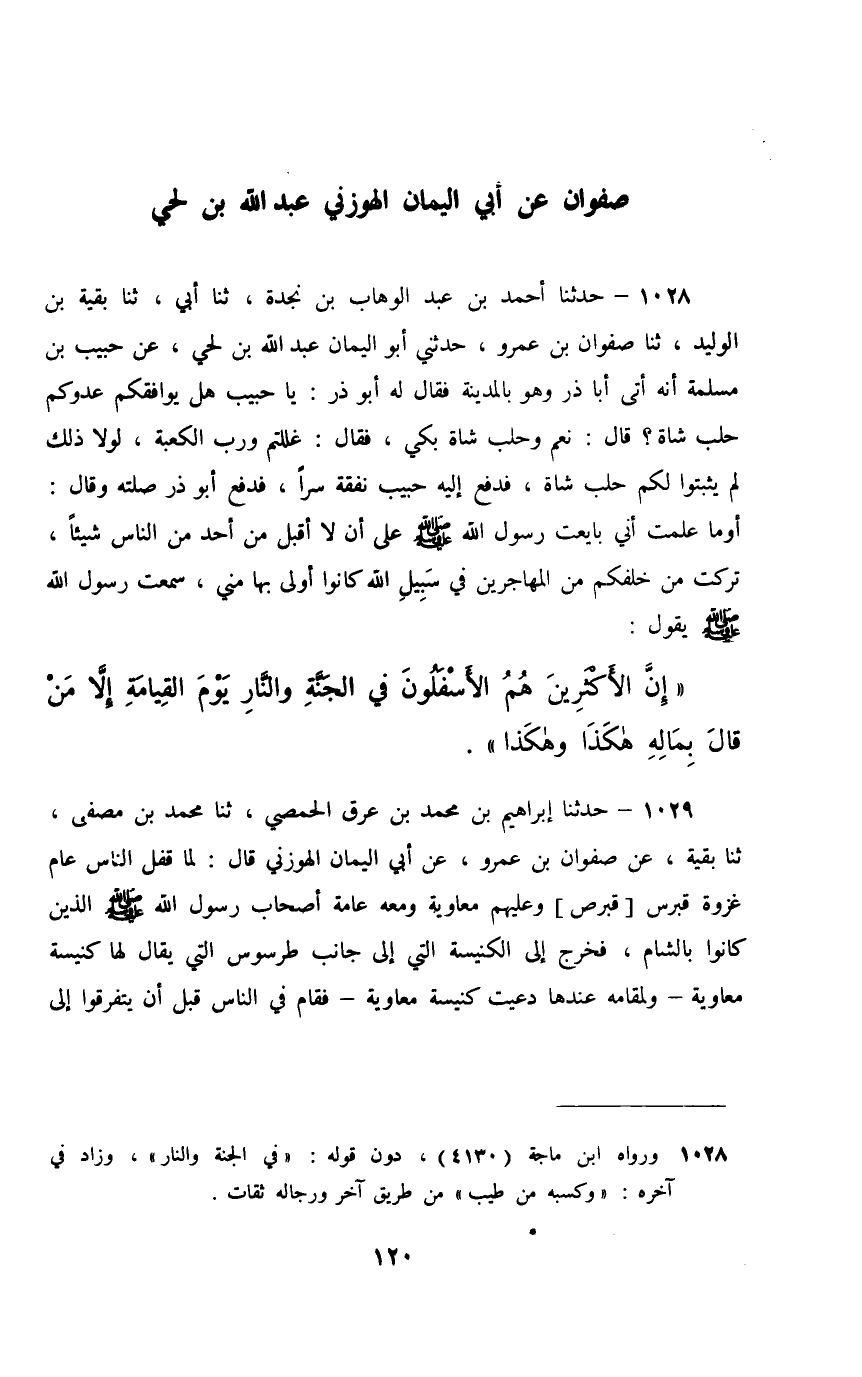 صفوان عن أبي اليمان الهوزني عبد الله بن لحي
١٠٢٨ – حدثنا أحمد بن عبد الوهاب بن نجدة ، ثنا أبي ، ثنا بقية بن
الوليد ، ثنا صفوان بن عمرو ، حدثني أبو اليمان عبد الله بن لحي ، عن حبيب بن
مسلمة أنه أتى أبا ذر وهو بالمدينة فقال له أبو ذر : يا حبيب هل يوافقكم عدوكم
حلب شاة ؟ قال : نعم وحلب شاة بكي ، فقال : غللتم ورب الكعبة ، لولا ذلك
لم يثبتوا لكم حلب شاة ، فدفع إليه حبيب نفقة سراً ، فدفع أبو ذر صلته وقال :
أوما علمت أني بايعت رسول الله ﷺ على أن لا أقبل من أحد من الناس شيئاً ،
تركت من خلفكم من المهاجرين في سَبِيلِ الله كانوا أولى بها مني ، سمعت رسول الله
ﷺ يقول :
« إِنَّ الأَكْثَرِينَ هُمُ الأَسْفَلُونَ في الجَنَّةِ والنَّارِ يَوْمَ القِيامَةِ إِلَّا مَنْ
قالَ بِمَالِهِ هٰكَذَا وهٰكَذا » .
١٠٢٩ – حدثنا إبراهيم بن محمد بن عرق الحمصي ، ثنا محمد بن مصفى ،
ثنا بقية ، عن صفوان بن عمرو ، عن أبي اليمان الهوزني قال : لما قفل الناس عام
غزوة قبرس [ قبرص ] وعليهم معاوية ومعه عامة أصحاب رسول الله ﷺ الذين
كانوا بالشام ، فخرج إلى الكنيسة التي إلى جانب طرسوس التي يقال لها كنيسة
معاوية – ولمقامه عندها دعيت كنيسة معاوية – فقام في الناس قبل أن يتفرقوا إلى
١٠٢٨ ورواه ابن ماجة (٤١٣٠) ، دون قوله : «في الجنة والنار» ، وزاد في
آخره : «وكسبه من طيب» من طريق آخر ورجاله ثقات .
١٢٠